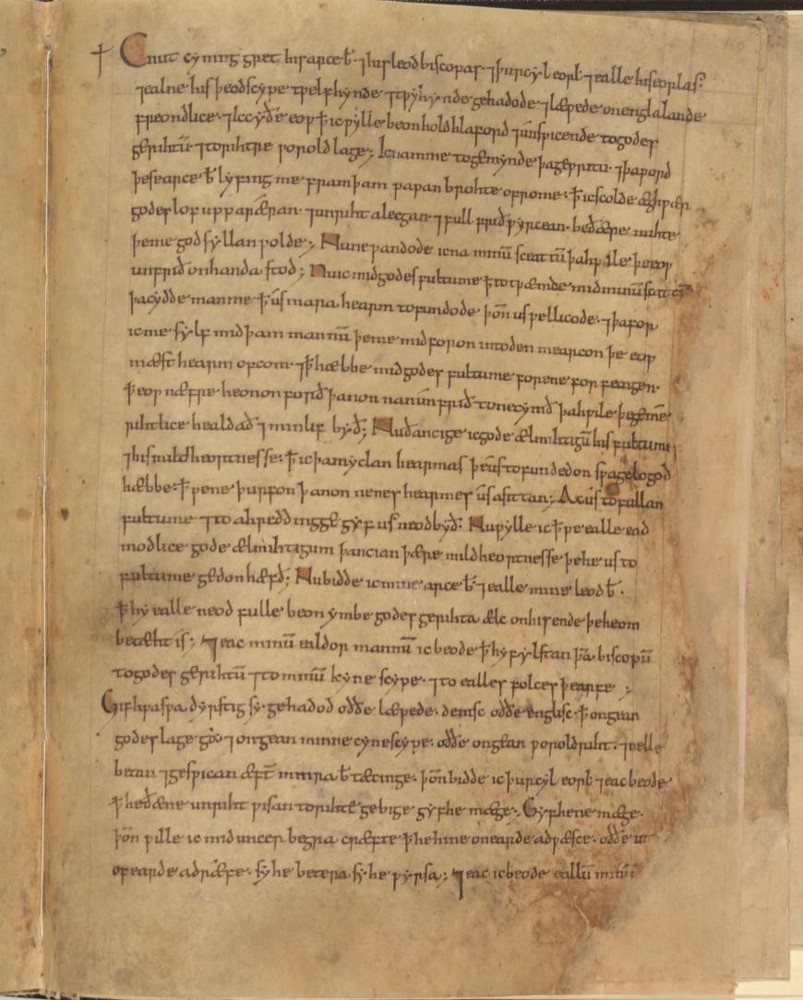 † Cnut cyning gret his arceb̄. ⁊ his leod biscopas. ⁊ þurcyl eorl. ⁊ ealle his eorlas.
⁊ ealne his þeodscype. tƿelfhynde. ⁊ tƿyhynde. gehadode. ⁊ læƿede. on englalande
freondlice. ⁊ ic cyðe eoƿ ꝥ ic ƿylle beon hold hlaford. ⁊ unsƿicende to godes
gerihtū. ⁊ to rihtre ƿorold lage; Ic nam me to gemynde þa geƿritu. ⁊ þa ƿord
þe se arceb̄ lyfing me fram þam papan brohte of rome. ꝥ ic scolde æghƿær
godes lof upp aræran. ⁊ unriht alecgan. ⁊ full frið ƿyrcean. be ðære mihte
þe me god syllan ƿolde; Nu ne ƿandode ic na minū sceattū þa hƿile þe eoƿ
unfrið on handa stod; Nu ic mid godes fultume ꝥ totƿæmde mid minū scattū
þa cydde man me ꝥ us mara hearm to fundode. þon̄ us ƿel licode. ⁊ þa for
ic me sylf mid þam mannū þe me mid foron into denmearcon þe eoƿ
mæst hearm of com. ⁊ ꝥ hæbbe mid godes fultume forene forfangen.
ꝥ eoƿ næfre heonon forð þanon nan unfrið to ne cymð þa hƿile þe ge me
rihtlice healdað ⁊ min lif byð; Nu ðancige ic gode ælmihtigū his fultumes
⁊ his mildheortnesse. ꝥ ic þa myclan hearmas þe us to fundedon sƿa gelogod
hæbbe. ꝥ ƿe ne þurfon þanon nenes hearmes us asittan; Ac us to fullan
fultume. ⁊ to ahreddingge gyf us neod byð: Nu ƿylle ic ꝥ ƿe ealle ead
modlice gode ælmihtigum þancian þære mildheortnesse þe he us to
fultume gedon hæfð; Nu bidde ic mine arceb̄. ⁊ ealle mine leodb̄.
ꝥ hy ealle neod fulle beon ymbe godes gerihta ælc on his ende þe heom
betæht is; ⁊ eac minū ealdormannū ic beode ꝥ hy fylstan þā biscopū
to godes gerihtū ⁊ to minū kynescype. ⁊ to ealles folces þearfe;
Gif hƿa sƿa dyrstig sy. gehadod oððe læƿede. denisc oððe englisc. ꝥ ongean
godes lage ga ⁊ ongean minne cynescype. oððe ongean ƿoroldriht. ⁊ nelle
betan ⁊ gesƿican æfter minra b̄ tæcinge. þon̄ bidde ic þurcyl eorl. ⁊ eac beode
ꝥ he ðæne unrihtƿisan to rihte gebige gyf he mæge. Gyf he ne mæge.
þon̄ ƿille ic mid uncer begra cræfte ꝥ he hine on earde adƿæsce. oððe ut
of earde adræfe. sy he betera sy he ƿyrsa; ⁊ eac ic beode eallū minū